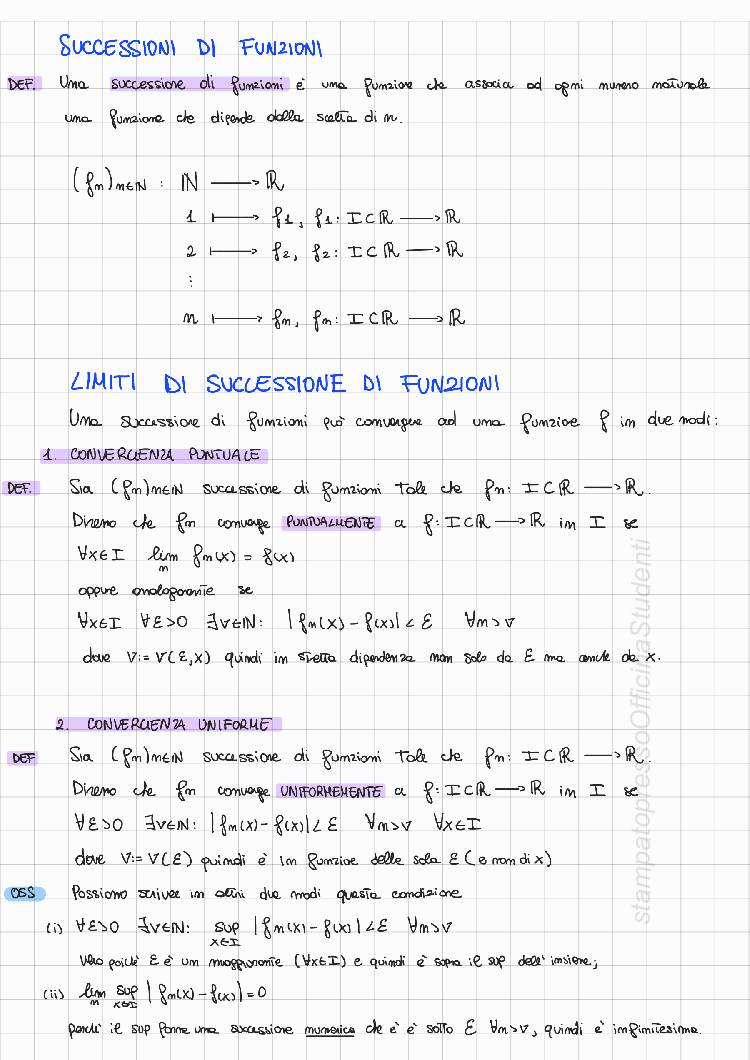 SUCCESSIONI DI FUNZIONI
DEF. Una successione di funzioni è una funzione che associa ad ogni numero naturale
una funzione che dipende dalla scelta di n.
(fn)n∈ℕ : ℕ ⟶ ℝ
1 ⟼ f1, f1: I⊂ℝ ⟶ ℝ
2 ⟼ f2, f2: I⊂ℝ ⟶ ℝ
⋮
n ⟼ fn, fn: I⊂ℝ ⟶ ℝ
LIMITI DI SUCCESSIONE DI FUNZIONI
Una successione di funzioni può convergere ad una funzione f in due modi:
1. CONVERGENZA PUNTUALE
DEF. Sia (fn)n∈ℕ successione di funzioni tale che fn: I⊂ℝ ⟶ ℝ.
Diremo che fn converge PUNTUALMENTE a f: I⊂ℝ ⟶ ℝ in I se
∀x∈I lim n fn(x) = f(x)
oppure analogamente se
∀x∈I ∀ε>0 ∃ν∈ℕ: |fn(x) - f(x)| < ε ∀n>ν
dove ν:= ν(ε,x) quindi in stretta dipendenza non solo da ε ma anche da x.
2. CONVERGENZA UNIFORME
DEF Sia (fn)n∈ℕ successione di funzioni tale che fn: I⊂ℝ ⟶ ℝ.
Diremo che fn converge UNIFORMEMENTE a f: I⊂ℝ ⟶ ℝ in I se
∀ε>0 ∃ν∈ℕ: |fn(x) - f(x)| < ε ∀n>ν ∀x∈I
dove ν:= ν(ε) quindi è in funzione della sola ε (e non di x)
OSS Possiamo scrivere in altri due modi questa condizione
(i) ∀ε>0 ∃ν∈ℕ: sup x∈I |fn(x) - f(x)| < ε ∀n>ν
Vero poichè ε è un maggiorante (∀x∈I) e quindi è sopra il sup dell'insieme;
(ii) lim n sup x∈I |fn(x) - f(x)| = 0
perchè il sup forma una successione numerica che è è sotto ε ∀n>ν, quindi è infinitesima.
stampatopressoOfficinaStudenti